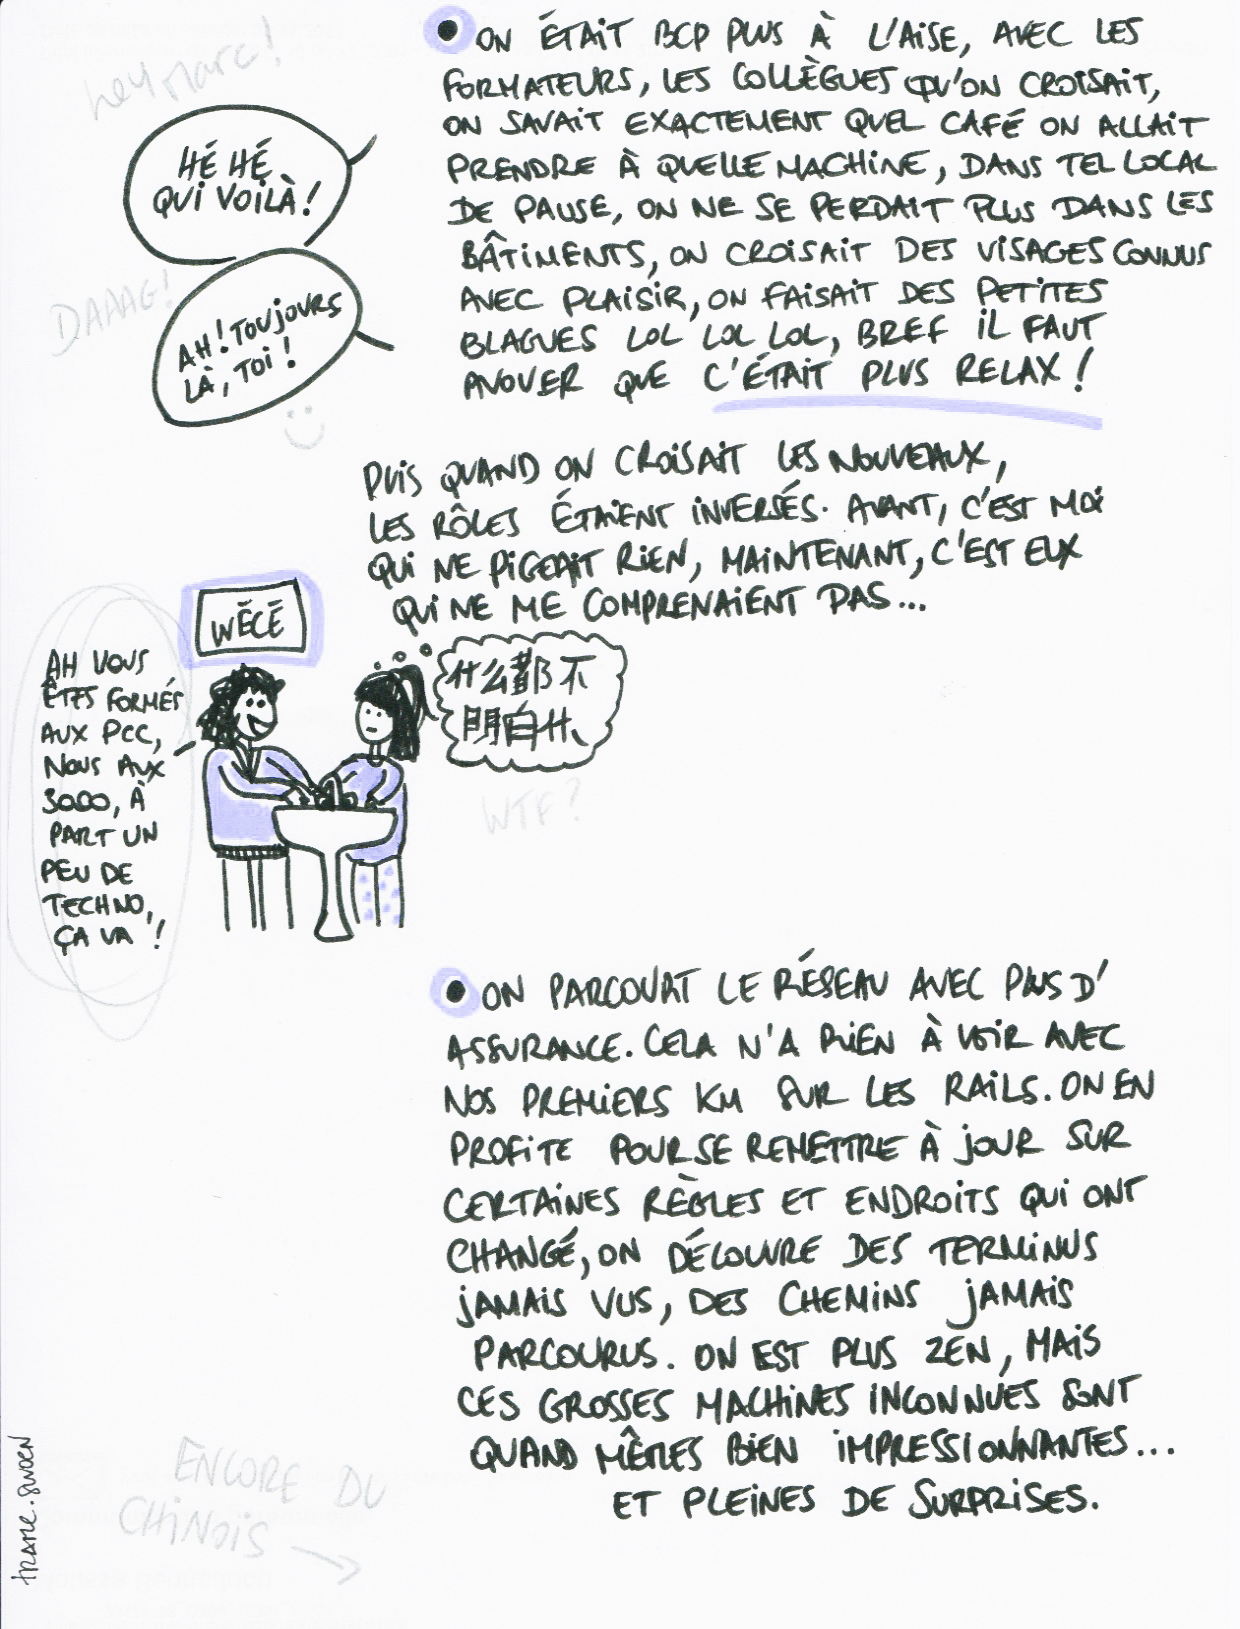 hey marc!
HÉ HÉ
QUI VOILÀ!
DAAAG!
AH! TOUJOURS
LÀ, TOI!
• ON ÉTAIT BCP PLUS À L'AISE, AVEC LES
FORMATEURS, LES COLLÈGUES QU'ON CROISAIT,
ON SAVAIT EXACTEMENT QUEL CAFÉ ON ALLAIT
PRENDRE À QUELLE MACHINE, DANS TEL LOCAL
DE PAUSE, ON NE SE PERDAIT PLUS DANS LES
BÂTIMENTS, ON CROISAIT DES VISAGES CONNUS
AVEC PLAISIR, ON FAISAIT DES PETITES
BLAGUES LOL LOL LOL, BREF IL FAUT
AVOUER QUE C'ÉTAIT PLUS RELAX!
PUIS QUAND ON CROISAIT LES NOUVEAUX,
LES RÔLES ÉTAIENT INVERSÉS. AVANT, C'EST MOI
QUI NE PIGEAIT RIEN, MAINTENANT, C'EST EUX
QUI NE ME COMPRENAIENT PAS...
WÉCÉ
AH VOUS
ÊTES FORMÉS
AUX PCC,
NOUS AUX
3000, À
PART UN
PEU DE
TECHNO,
ÇA VA!
什么都不
明白
WTF?
• ON PARCOURT LE RÉSEAU AVEC PLUS D'
ASSURANCE. CELA N'A RIEN À VOIR AVEC
NOS PREMIERS KM SUR LES RAILS. ON EN
PROFITE POUR SE REMETTRE À JOUR SUR
CERTAINES RÈGLES ET ENDROITS QUI ONT
CHANGÉ, ON DÉCOUVRE DES TERMINUS
JAMAIS VUS, DES CHEMINS JAMAIS
PARCOURUS. ON EST PLUS ZEN, MAIS
CES GROSSES MACHINES INCONNUES SONT
QUAND MÊMES BIEN IMPRESSIONNANTES...
ET PLEINES DE SURPRISES.
ENCORE DU
CHINOIS →